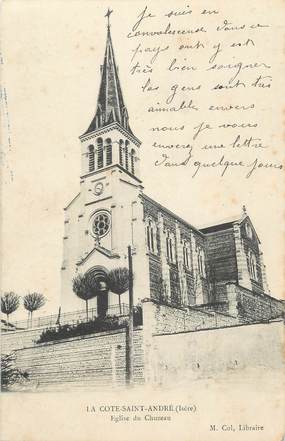 Je suis en
convalescence dans ce
pays ont y est
très bien soigner
les gens sont très
aimables envers
nous je vous
enverez une lettre
dans quelque jours
LA COTE-SAINT-ANDRÉ (Isère)
Eglise du Chuzeau
M. Col, Libraire